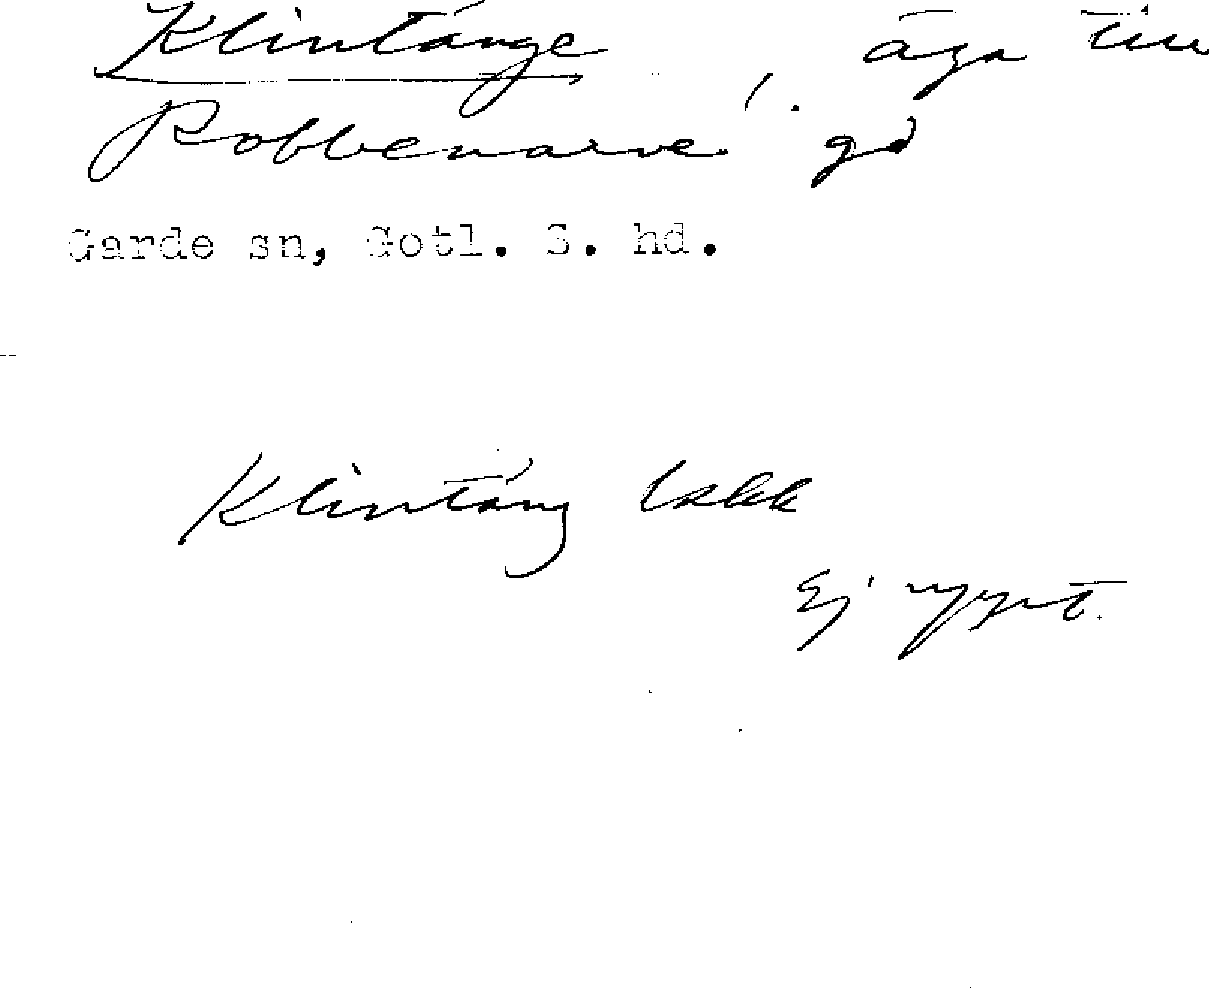 Klintänge, äga till
Robbenarve gd
Garde sn, Gotl. S. hd.
Klintäng
Ej uppt.